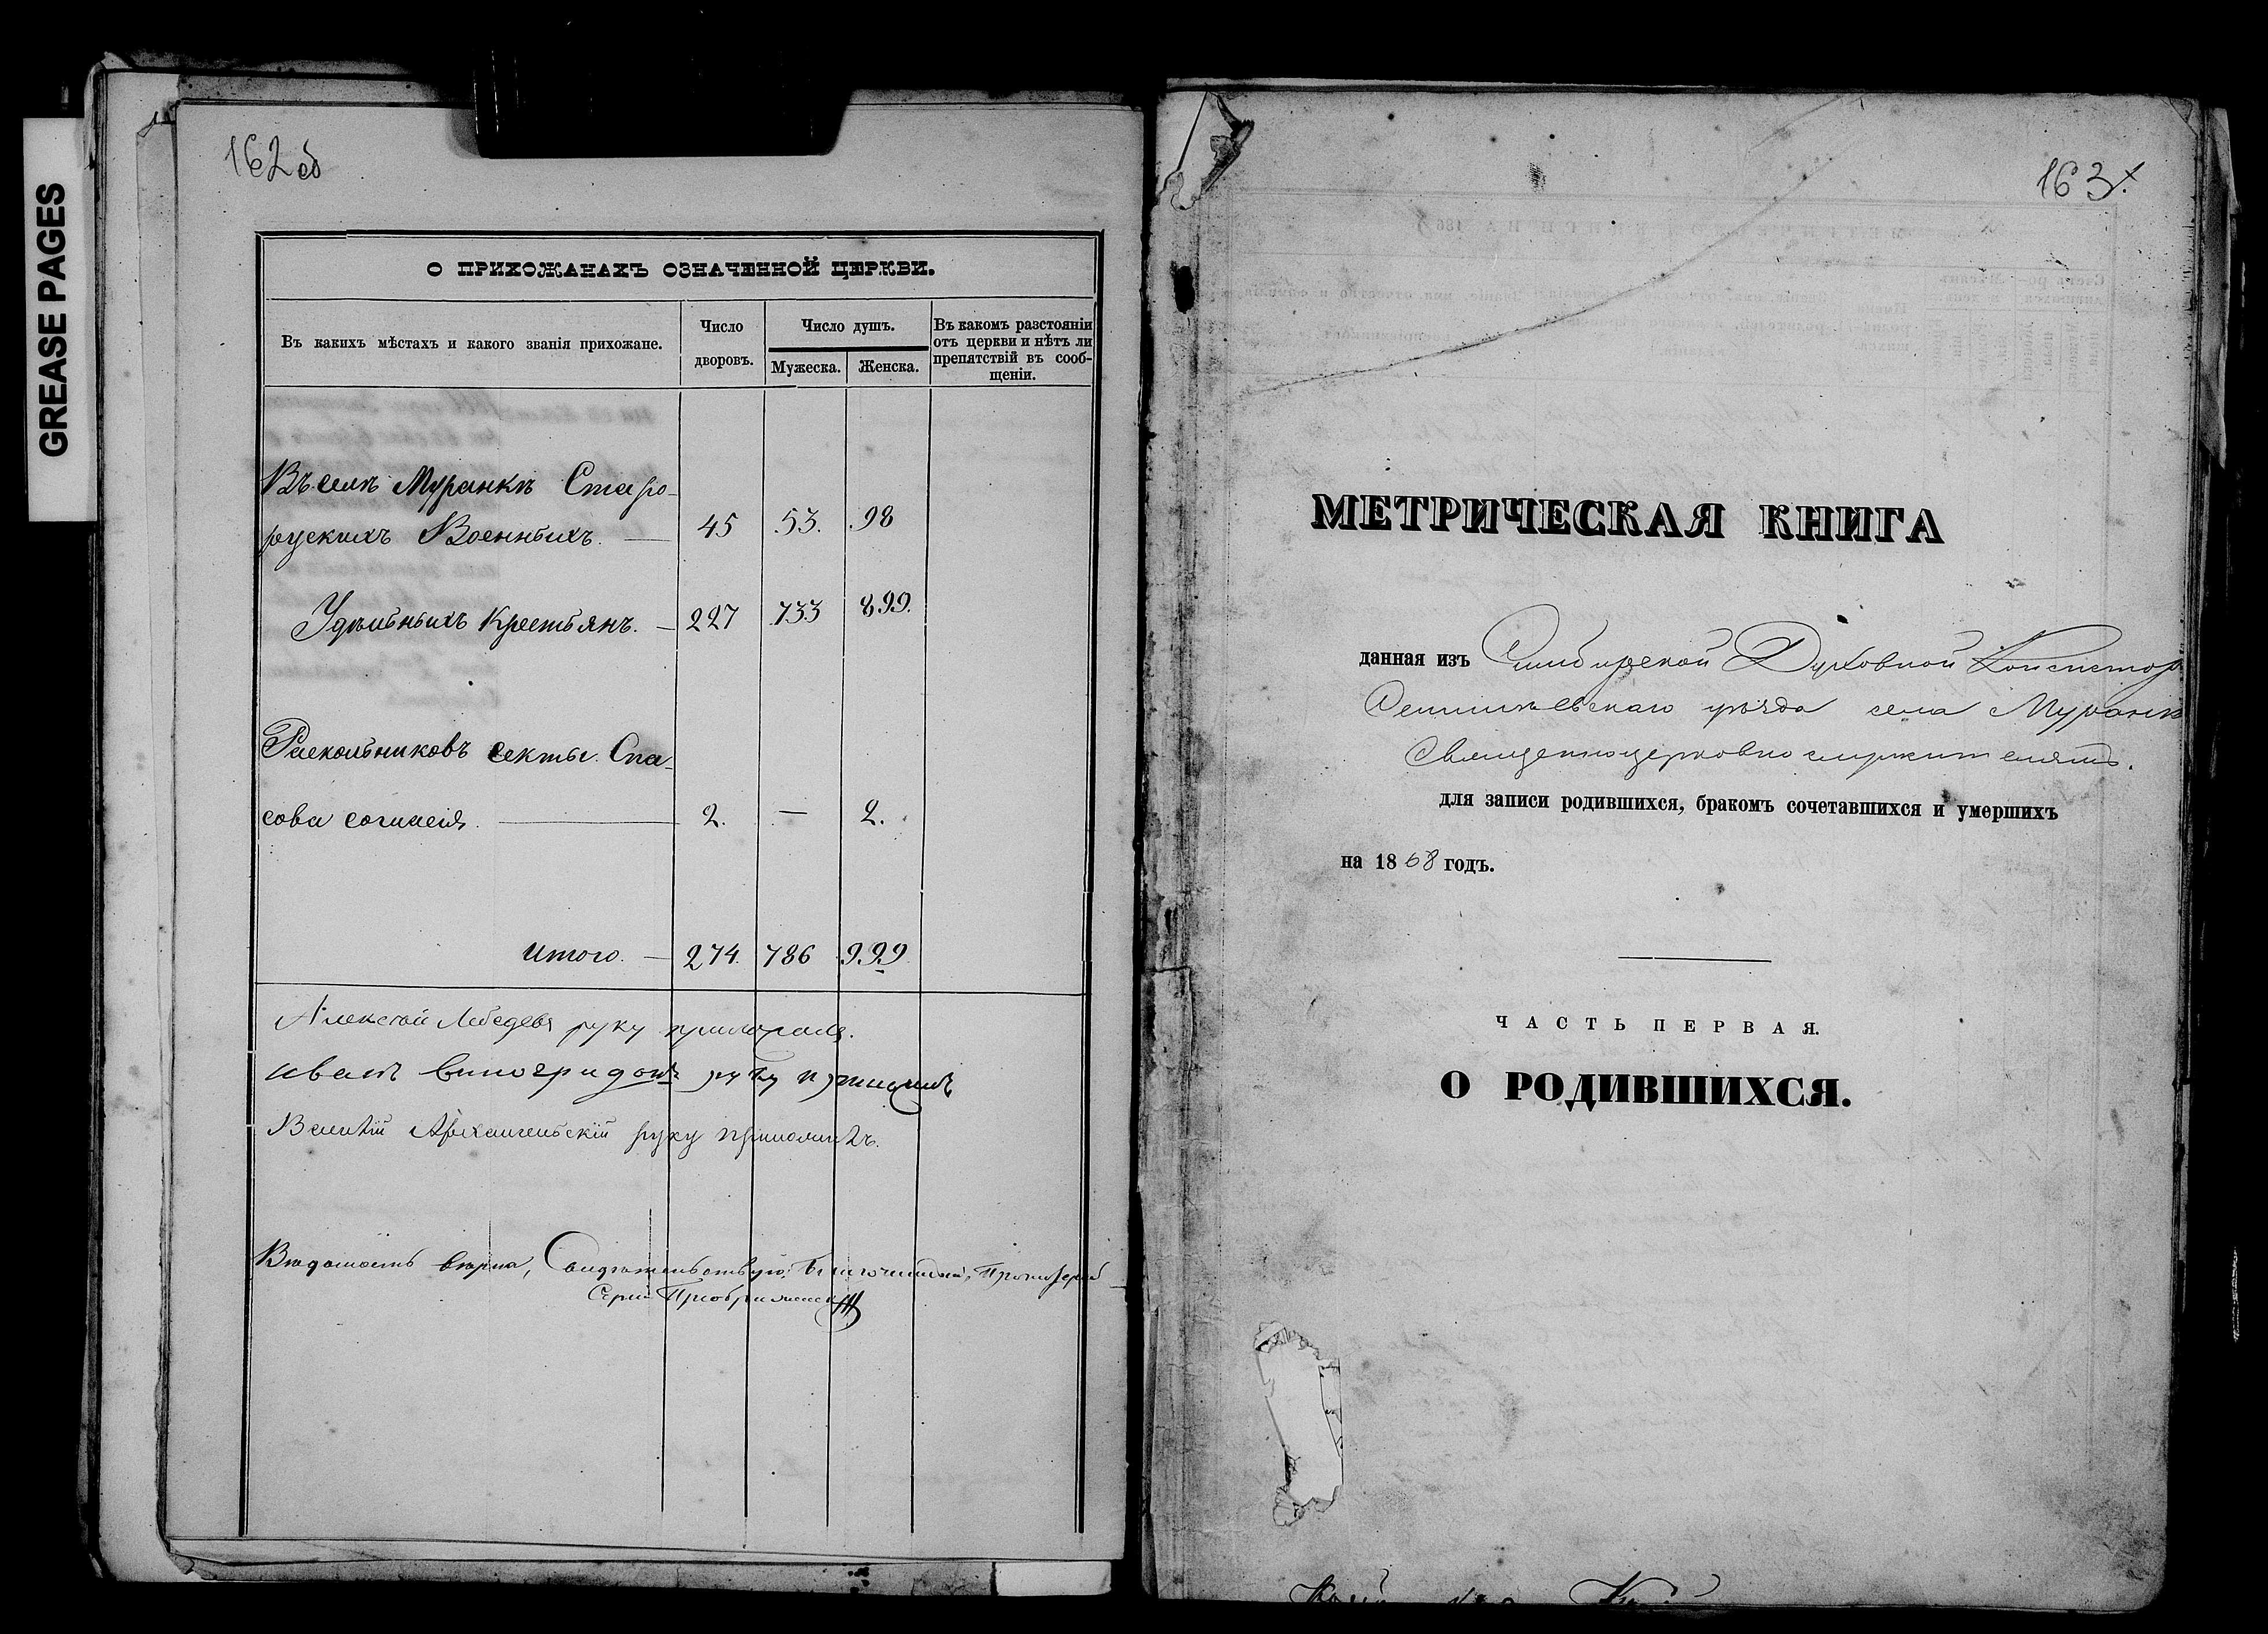 GREASE PAGES
162 об
О ПРИХОЖАНАХЪ ОЗНАЧЕННОЙ ЦЕРКВИ.
Въ какихъ мѣстахъ и какого званія прихожане.
Число дворовъ.
Число душъ.
Мужеска.
Женска.
Въ какомъ разстояніи
отъ церкви и нѣтъ ли
препятствій въ сооб-
щеніи.
Въ селѣ Муранкѣ Старо-
рускихъ Военныхъ. — 45 53. 98
Удѣльныхъ Крестьянъ. — 227 733 899.
Раскольниковъ секты Спа-
сова согласія. — 2. — 2.
Итого. — 274. 786 999
Алексѣй Лебедевъ руку приложилъ.
Иванъ Виноградовъ руку приложилъ
Василій Архангельскій руку приложилъ.
Вѣдомость вѣрна, Свидѣтельствую: Благочинный, Протоіерей
163.
МЕТРИЧЕСКАЯ КНИГА
данная изъ Симбирской Духовной Консистор
Сенгилѣевскаго уѣзда села Муранк
Священноцерковнослужителямъ.
для записи родившихся, бракомъ сочетавшихся и умершихъ
на 1868 годъ.
ЧАСТЬ ПЕРВАЯ.
О РОДИВШИХСЯ.